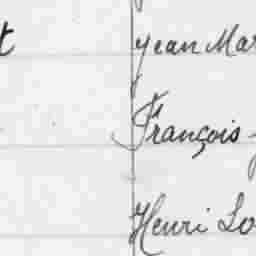 Jean Mar
François-
Henri Lo